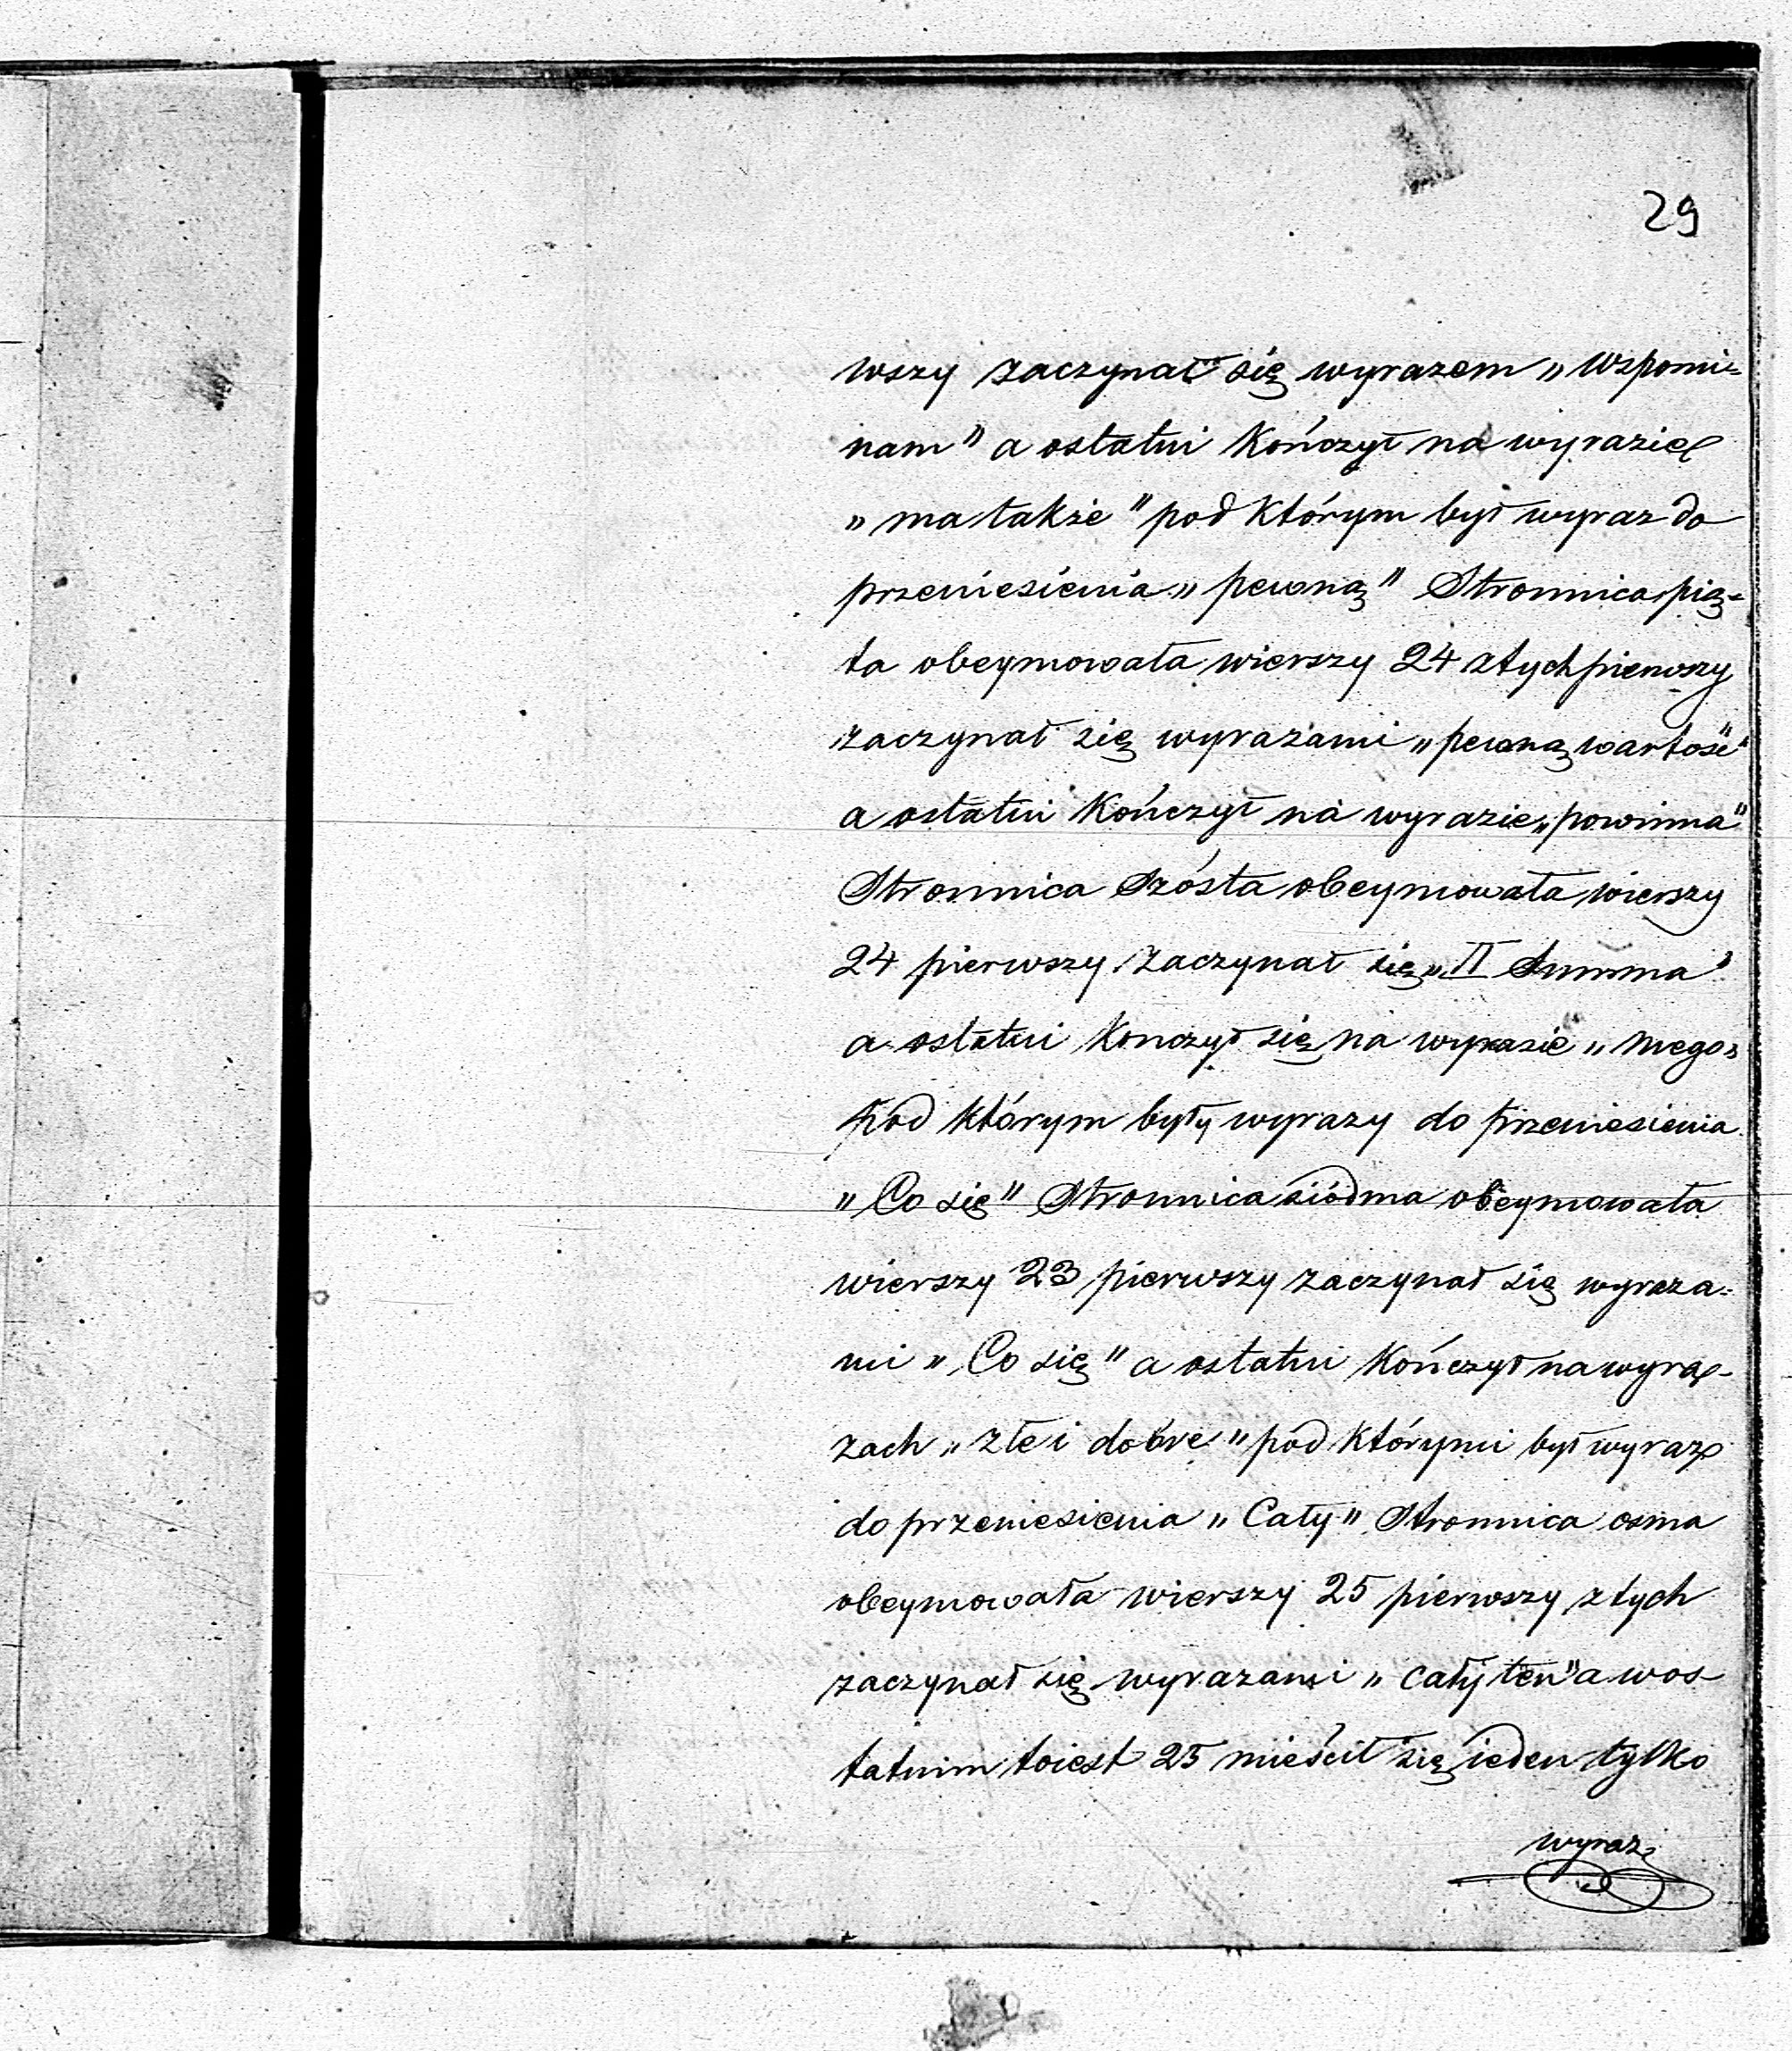 29
wszy zaczynał się wyrazem „ Wspomi=
nam” a ostatni kończył na wyrazie
„ ma także ” pod którym był wyraz do
przeniesienia „ pewną ” Stronnica pią=
ta obeymowała wierszy 24 z tych pierwszy
zaczynał się wyrazami „ pewną wartość ”
a ostatni kończył na wyrazie „ powinna ”
Stronnica Szósta obeymowała wierszy
24 pierwszy zaczynał się „ II Summa ”
a ostatni konczył się na wyrazie „ mego „
pod którym były wyrazy do przeniesienia
„ Co się ” Stronnica siódma obeymowała
wierszy 23 pierwszy zaczynał się wyraza=
mi „ Co się ” a ostatni kończył na wyra-
zach „ złe i dobre „ pod którymi był wyraz
do przeniesienia „ Cały „ Stronnica osma
obeymowała wierszy 25 pierwszy z tych
zaczynał się wyrazami „ cały ten ” a w os
tatnim toiest 25 mieścił się ieden tylko
wyraz